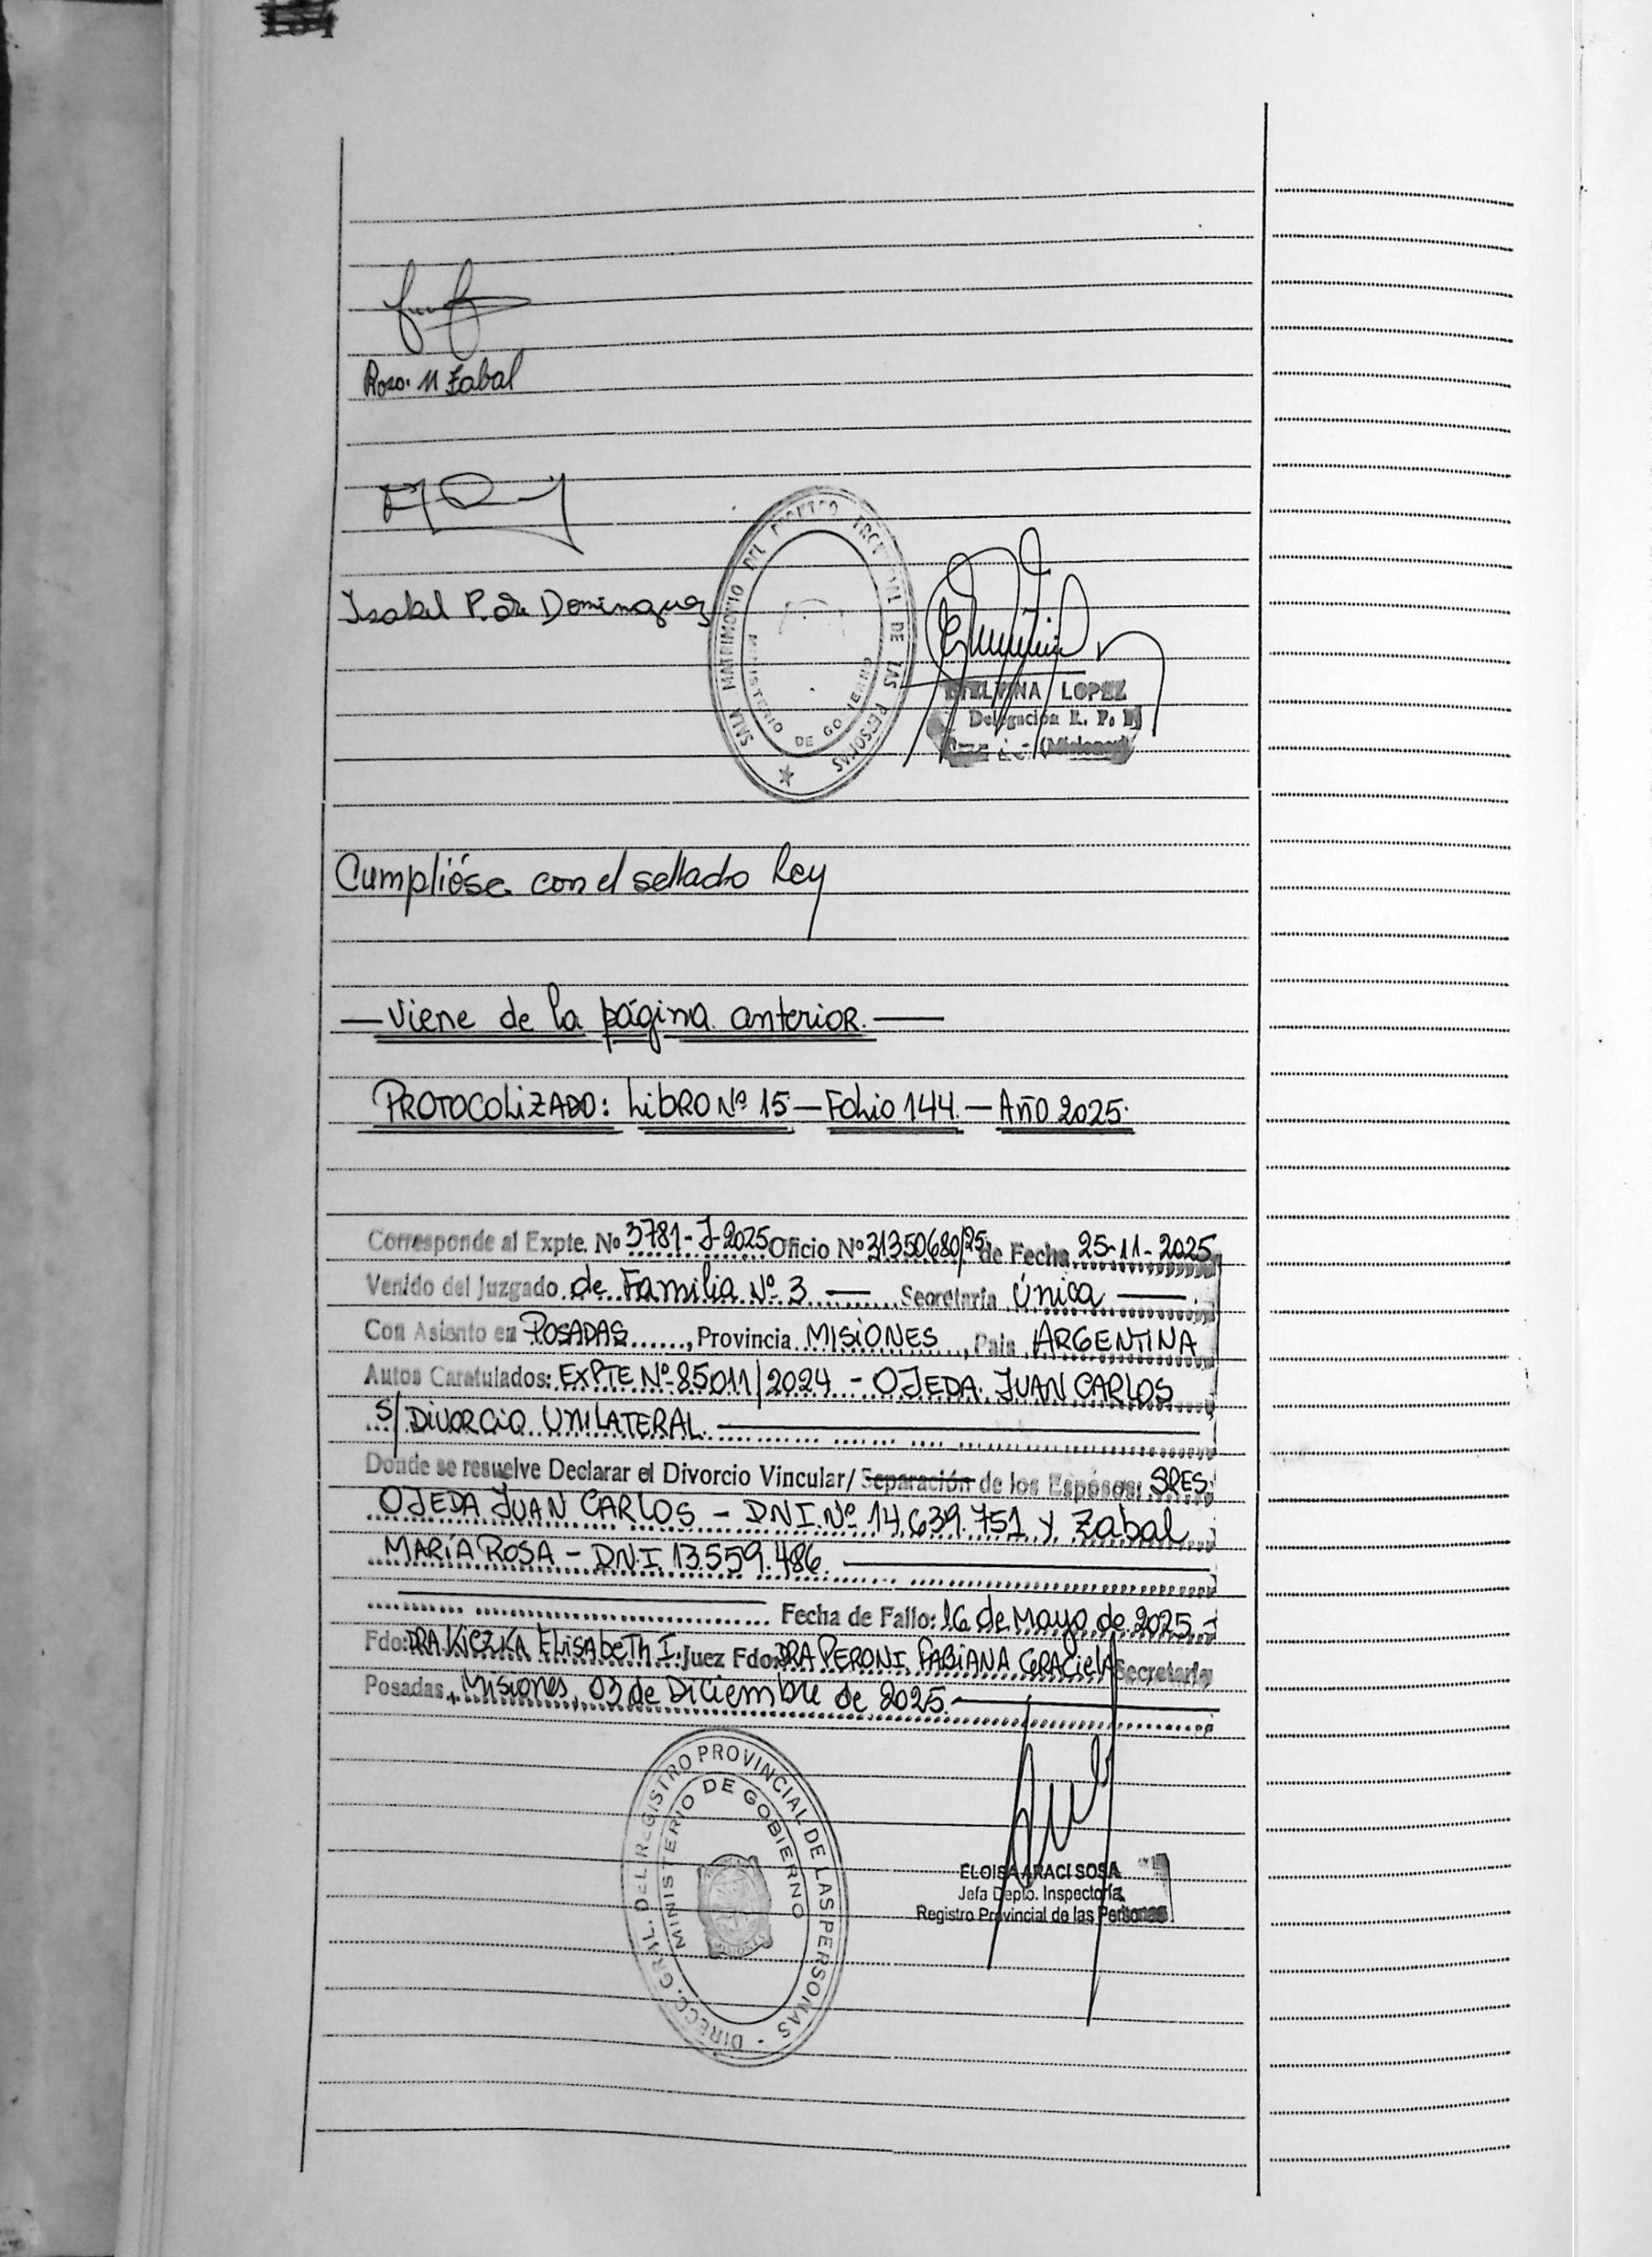 Rosa. M Zabal
Isabel P. de Dominguez
SALA MATRIMONIO DEL DE LAS PERSONAS
MINISTERIO DE GOBIERNO
LOPEZ
Delegación R. P. P
(Misiones)
Cumplióse con el sellado ley
— Viene de la página anterior. —
PROTOCOLIZADO: LIBRO Nº 15 — FOLIO 144. — AÑO 2025.
Corresponde al Expte. Nº 3781-J-2025 Oficio Nº 31350680/25 de Fecha 25-11-2025
Venido del Juzgado de Familia Nº 3 — Secretaría Única —
Con Asiento en POSADAS, Provincia MISIONES, País ARGENTINA
Autos Caratulados: EXPTE Nº 85011/2024 - OJEDA JUAN CARLOS
S/ DIVORCIO UNILATERAL.
Donde se resuelve Declarar el Divorcio Vincular/ Separación de los Esposos: SRES.
OJEDA JUAN CARLOS - DNI. Nº 14.639.751 y Zabal
MARÍA ROSA - DN.I. 13.559.486.
Fecha de Fallo: 16 de Mayo de 2025 -
Fdo: DRA. KICZKA ELISABETH I. Juez Fdo: DRA PERONI FABIANA GRACIELA Secretaría
Posadas, Misiones, 03 de Diciembre de 2025.
DIRECC. GRAL. DEL REGISTRO PROVINCIAL DE LAS PERSONAS -
MINISTERIO DE GOBIERNO
ELOISA ARACI SOSA
Jefa Depto. Inspectoría
Registro Provincial de las Personas